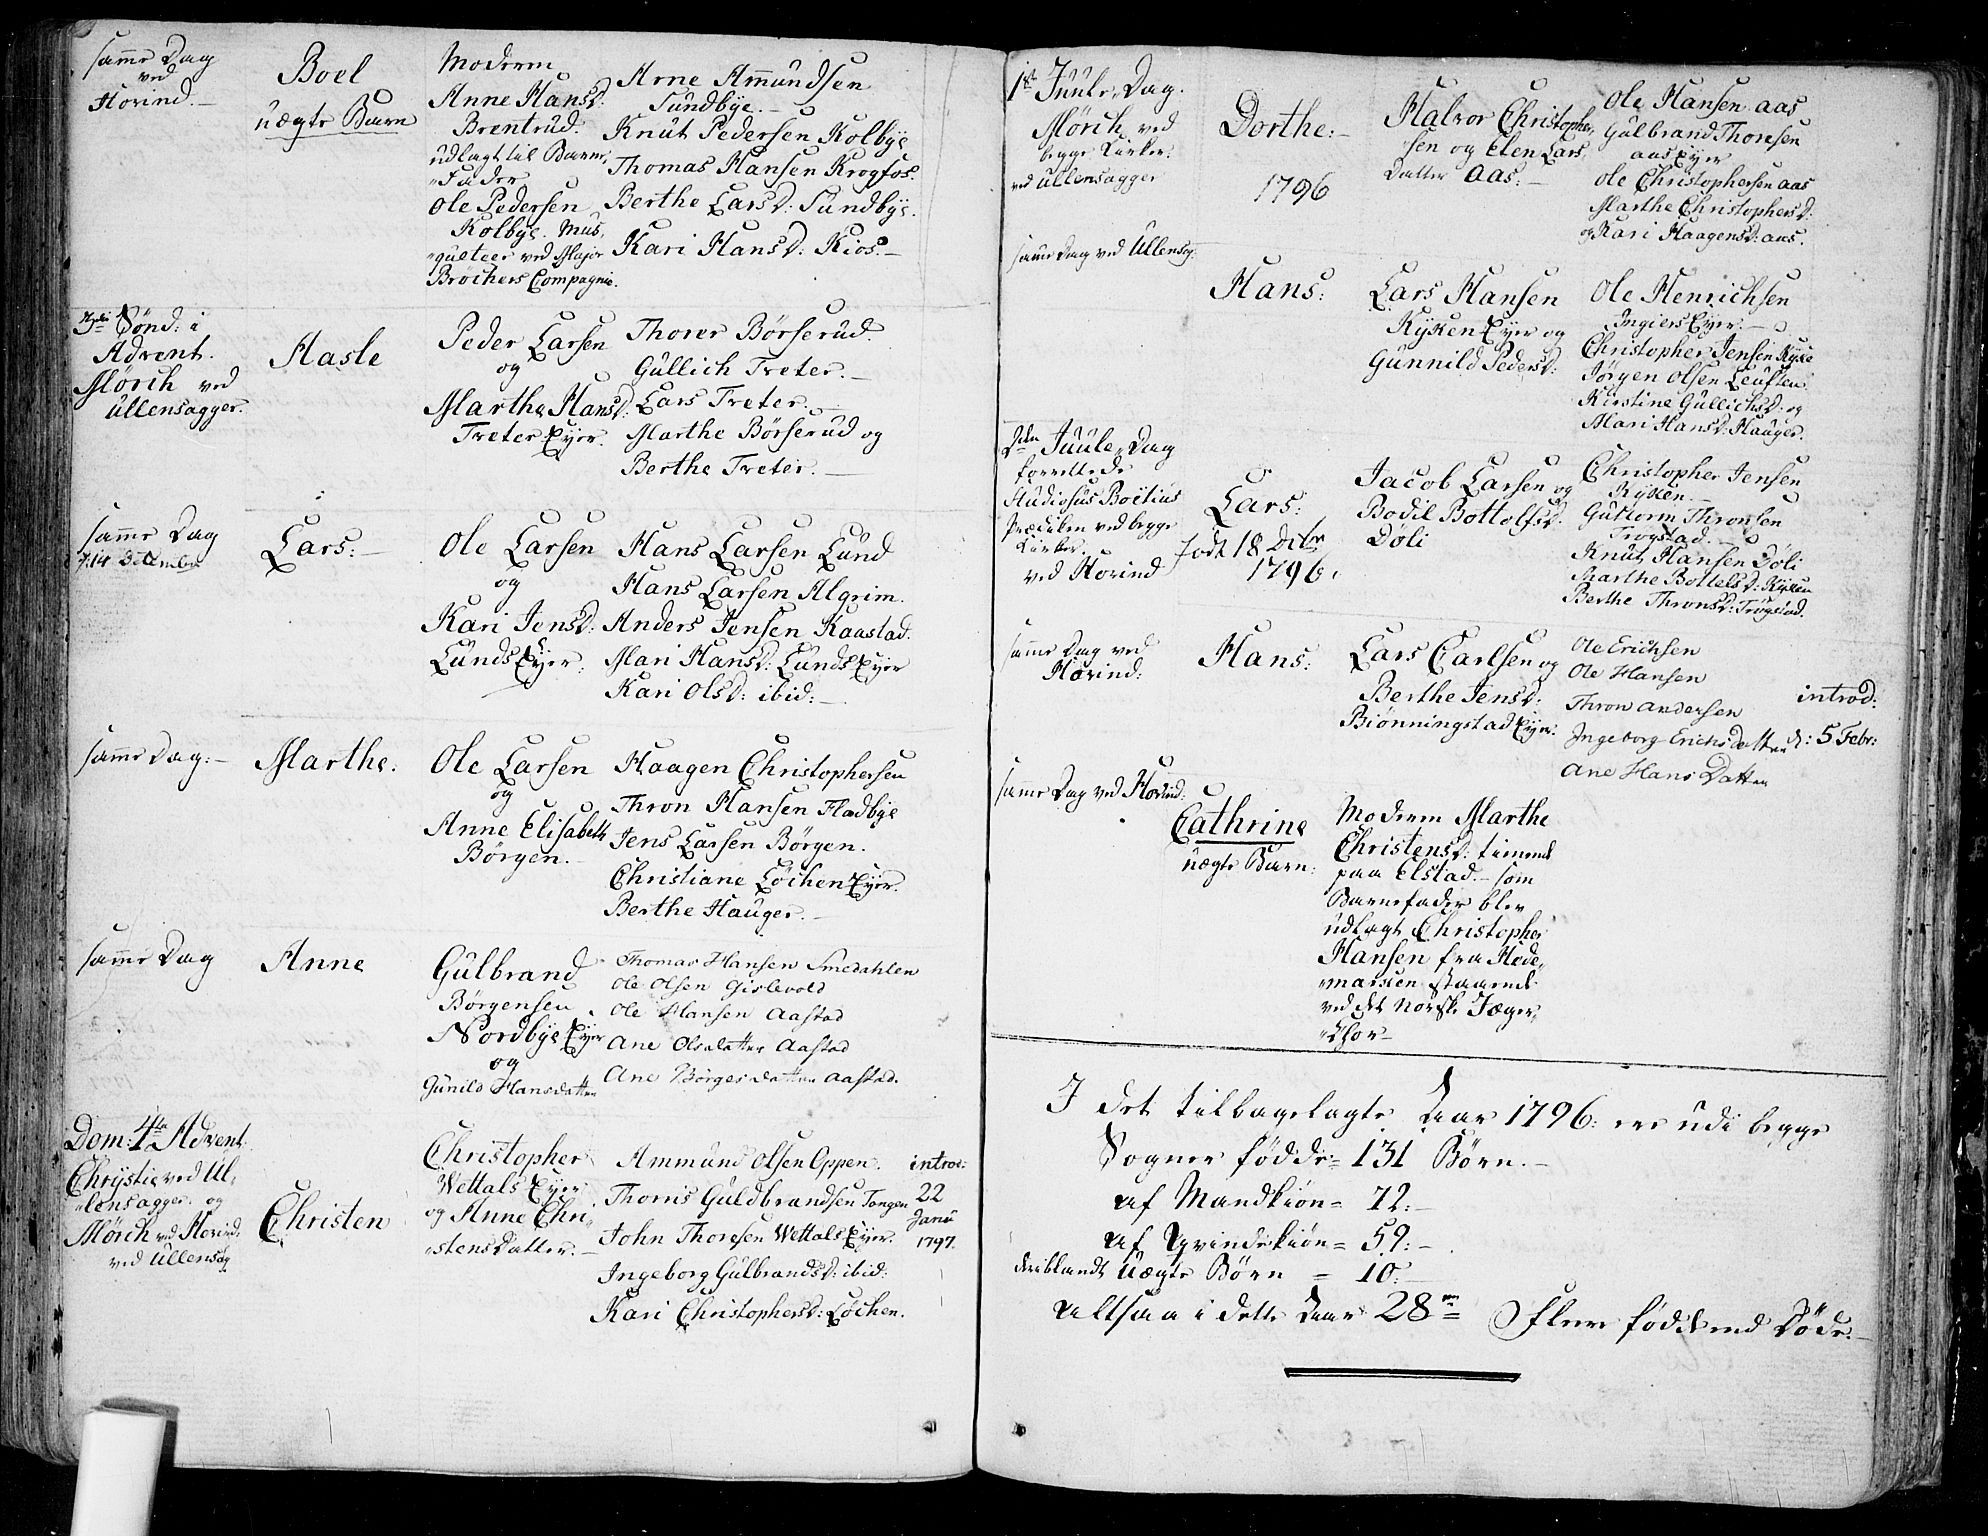 samme Dag
ved
Hovind.-
Boel
uægte Barn
Moderen
Anne Hansd:
Brentrud.
udlagt til Barne,
"Fader
Ole Pedersen
Kolbye. Mus,
"queteer ved Major
Bröchers Compagnie.
Arne Amundsen
Sundbye.-
Knut Pedersen Kolbye
Thomas Hansen Krogfos.
Berthe Larsd: Sundbye.
Kari Hansd: Kios.-
3die Sønd: i
Advent.
Mørch ved
Ullensagger.
Aasle
Peder Larsen
og
Marthe Hansd:
Treter Eyer.
Thorer Börserud.
Gullich Treter.-
Lars Treter.-
Marthe Börserud og
Berthe Treter.-
samme Dag
f. 14 December
Lars:-
Ole Larsen
og
Kari Jensd:
Lunds Eyer.
Hans Larsen Lund
Hans Larsen Algrim.
Anders Jensen Kaastad.
Mari Hansd: Lunds Eyer
Kari Olsd: ibid:-
samme Dag:-
Marthe.
Ole Larsen
og
Anne Elisabeth
Börgen.-
Haagen Christophersen
Thron Hansen Fladbye
Jens Larsen Börgen.
Christiane Löchen Eyer.
Berthe Hauger.-
samme Dag
Anne
Gulbrand
Börgensen
Nordbye Eyer
og
Gunild Hansdatter
Thomas Hansen Smedahlen
Ole Olsen Gislevold
Ole Hansen Aastad
Ane Olsdatter Aastad
Ane Börgesdatter Aastad.
Dom: 4ta Advent.
Chrystie ved Ul,
"lensagger. og
Mörch ved Hovind.
ved Ullensag
Christen
Christopher
Wettals Eyer
og Anne Chri,
"stensdatter.-
Ammund Olsen Oppen.
Thorris Guldbrandsen Tangen
John Thoresen Wettals Eyer.
Ingeborg Gulbrandsd: ibid:
Kari Christophersd: Löchen.
introd:
22
Janu
1797.
1ste Juule Dag.
Mörch ved
begge Kirker.
ved Ullensagger
Dorthe:-
1796
Halvor Christopher,
sen og Elen Lars,
Datter Aas:-
Ole Hansen Aas
Gulbrand Thoresen
Aas Eyer
Ole Christophersen Aas
Marthe Christophersd:
og Kari Haagensd: Aas.
samme Dag ved Ullensag:
Hans:
Lars Hansen
Ryken Eyer og
Gunnild Pedersd:
Ole Henrichsen
Ingiers Eyer.-
Christopher Jensen Ryke
Jörgen Olsen Leuften
Kirstine Gullichsd: og
Mari Hansd: Hauger.
2den Juule Dag
forrettede
Studiosus Boëtius
Prædiken ved begge
Kirker.
ved Hovind
Lars:
Födt 18 Decbr
1796.
Jacob Larsen og
Bodil Bottolfsd:
Döli
Christopher Jensen
Ryken.-
Guttorm Thronsen
Trogstad.-
Knut Hansen Döli
Marthe Bottelsd: Ryken
Berthe Thronsd: Trögstad.
samme Dag ved
Hovind:
Hans:
Lars Carlsen og
Berthe Jensd:
Biönningstad Eyer.
Ole Erichsen
Ole Hansen
Thron Andersen
Ingeborg Erichsdatter
Ane Hans Datter
introd:
d: 5 Febr:
samme Dag ved Hovind:
Cathrine
uægte Barn:
Moderen Marthe
Christensd: tienende
paa Elstad.- som
Barnefader blev
udlagt Christopher
Hansen fra Hede,
"marken staaende
ved det Norske Jæger,
"Chor-
I det tilbagelagte Aar 1796: ere udi begge
Sogner födde = 131 Börn.-
af Mandkiön = 72:-
af Qvindekiön = 59:-
deriblandt Uægte Börn = 10:-
altsaa i dette Aar 28 Flere födde end Döde.-